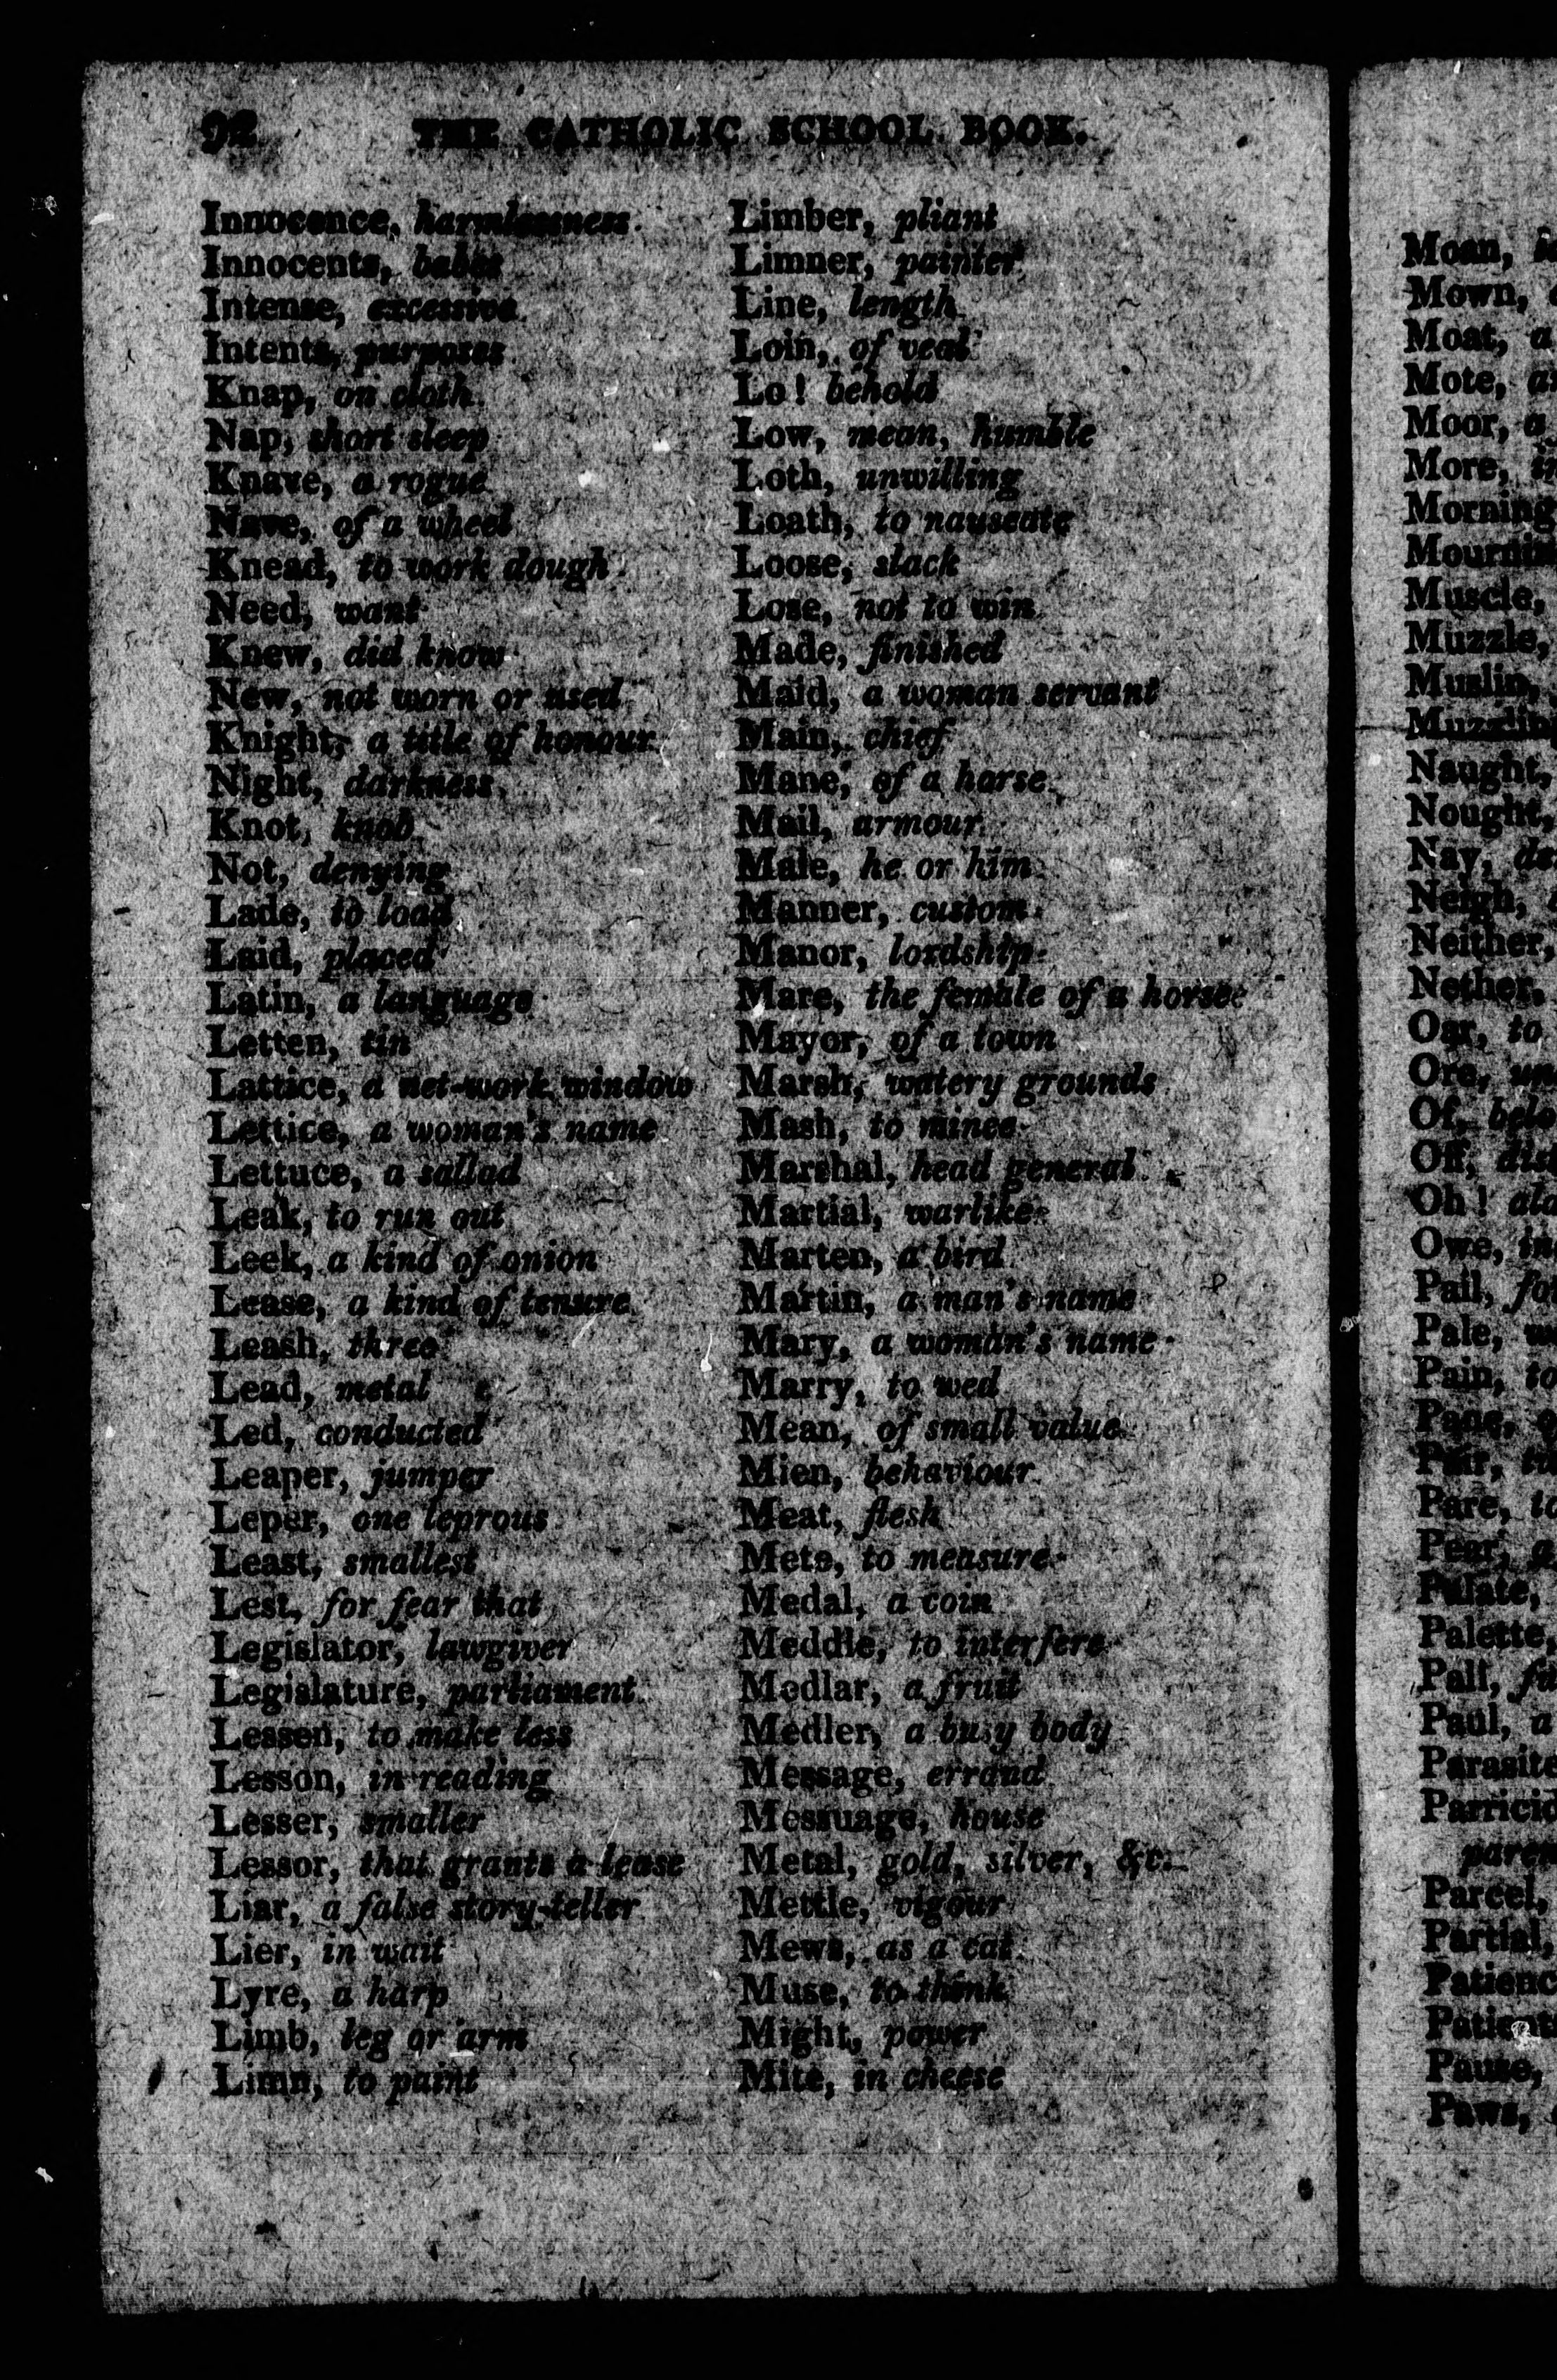 92 THE CATHOLIC SCHOOL BOOK.
Innocence, harmlessness
Innocents, babes
Intense, excessive
Intents, purposes
Knap, on cloth
Nap, short sleep
Knave, a rogue
Nave, of a wheel
Knead, to work dough
Need, want
Knew, did know
New, not worn or used
Knight, a title of honour
Night, darkness
Knot, knob
Not, denying
Lade, to load
Laid, placed
Latin, a language
Letten, tin
Lattice, a net-work window
Lettice, a woman's name
Lettuce, a sallad
Leak, to run out
Leek, a kind of onion
Lease, a kind of tenure
Leash, three
Lead, metal
Led, conducted
Leaper, jumper
Leper, one leprous
Least, smallest
Lest, for fear that
Legislator, lawgiver
Legislature, parliament
Lessen, to make less
Lesson, in reading
Lesser, smaller
Lessor, that grants a lease
Liar, a false story-teller
Lier, in wait
Lyre, a harp
Limb, leg or arm
Limn, to paint
Limber, pliant
Limner, painter
Line, length
Loin, of veal
Lo! behold
Low, mean, humble
Loth, unwilling
Loath, to nauseate
Loose, slack
Lose, not to win
Made, finished
Maid, a woman servant
Main, chief
Mane, of a horse
Mail, armour
Male, he or him
Manner, custom
Manor, lordship
Mare, the female of a horse
Mayor, of a town
Marsh, watery grounds
Mash, to mince
Marshal, head general
Martial, warlike
Marten, a bird
Martin, a man's name
Mary, a woman's name
Marry, to wed
Mean, of small value
Mien, behaviour
Meat, flesh
Mete, to measure
Medal, a coin
Meddle, to interfere
Medlar, a fruit
Medler, a busy body
Message, errand
Messuage, house
Metal, gold, silver, &c.
Mettle, vigour
Mews, as a cat
Muse, to think
Might, power
Mite, in cheese
Moan,
Mown,
Moat, a
Mote,
Moor, a
More,
Morning
Muscle,
Muzzle,
Muslin,
Naught,
Nought,
Nay,
Neigh,
Neither,
Nether,
Oar, to
Ore,
Of,
Off,
Oh!
Owe,
Pail,
Pale,
Pain, to
Pane,
Pair,
Pare,
Pear, a
Palate,
Palette,
Pall,
Paul, a
Parasite
Parcel,
Partial,
Pause,
Paws,